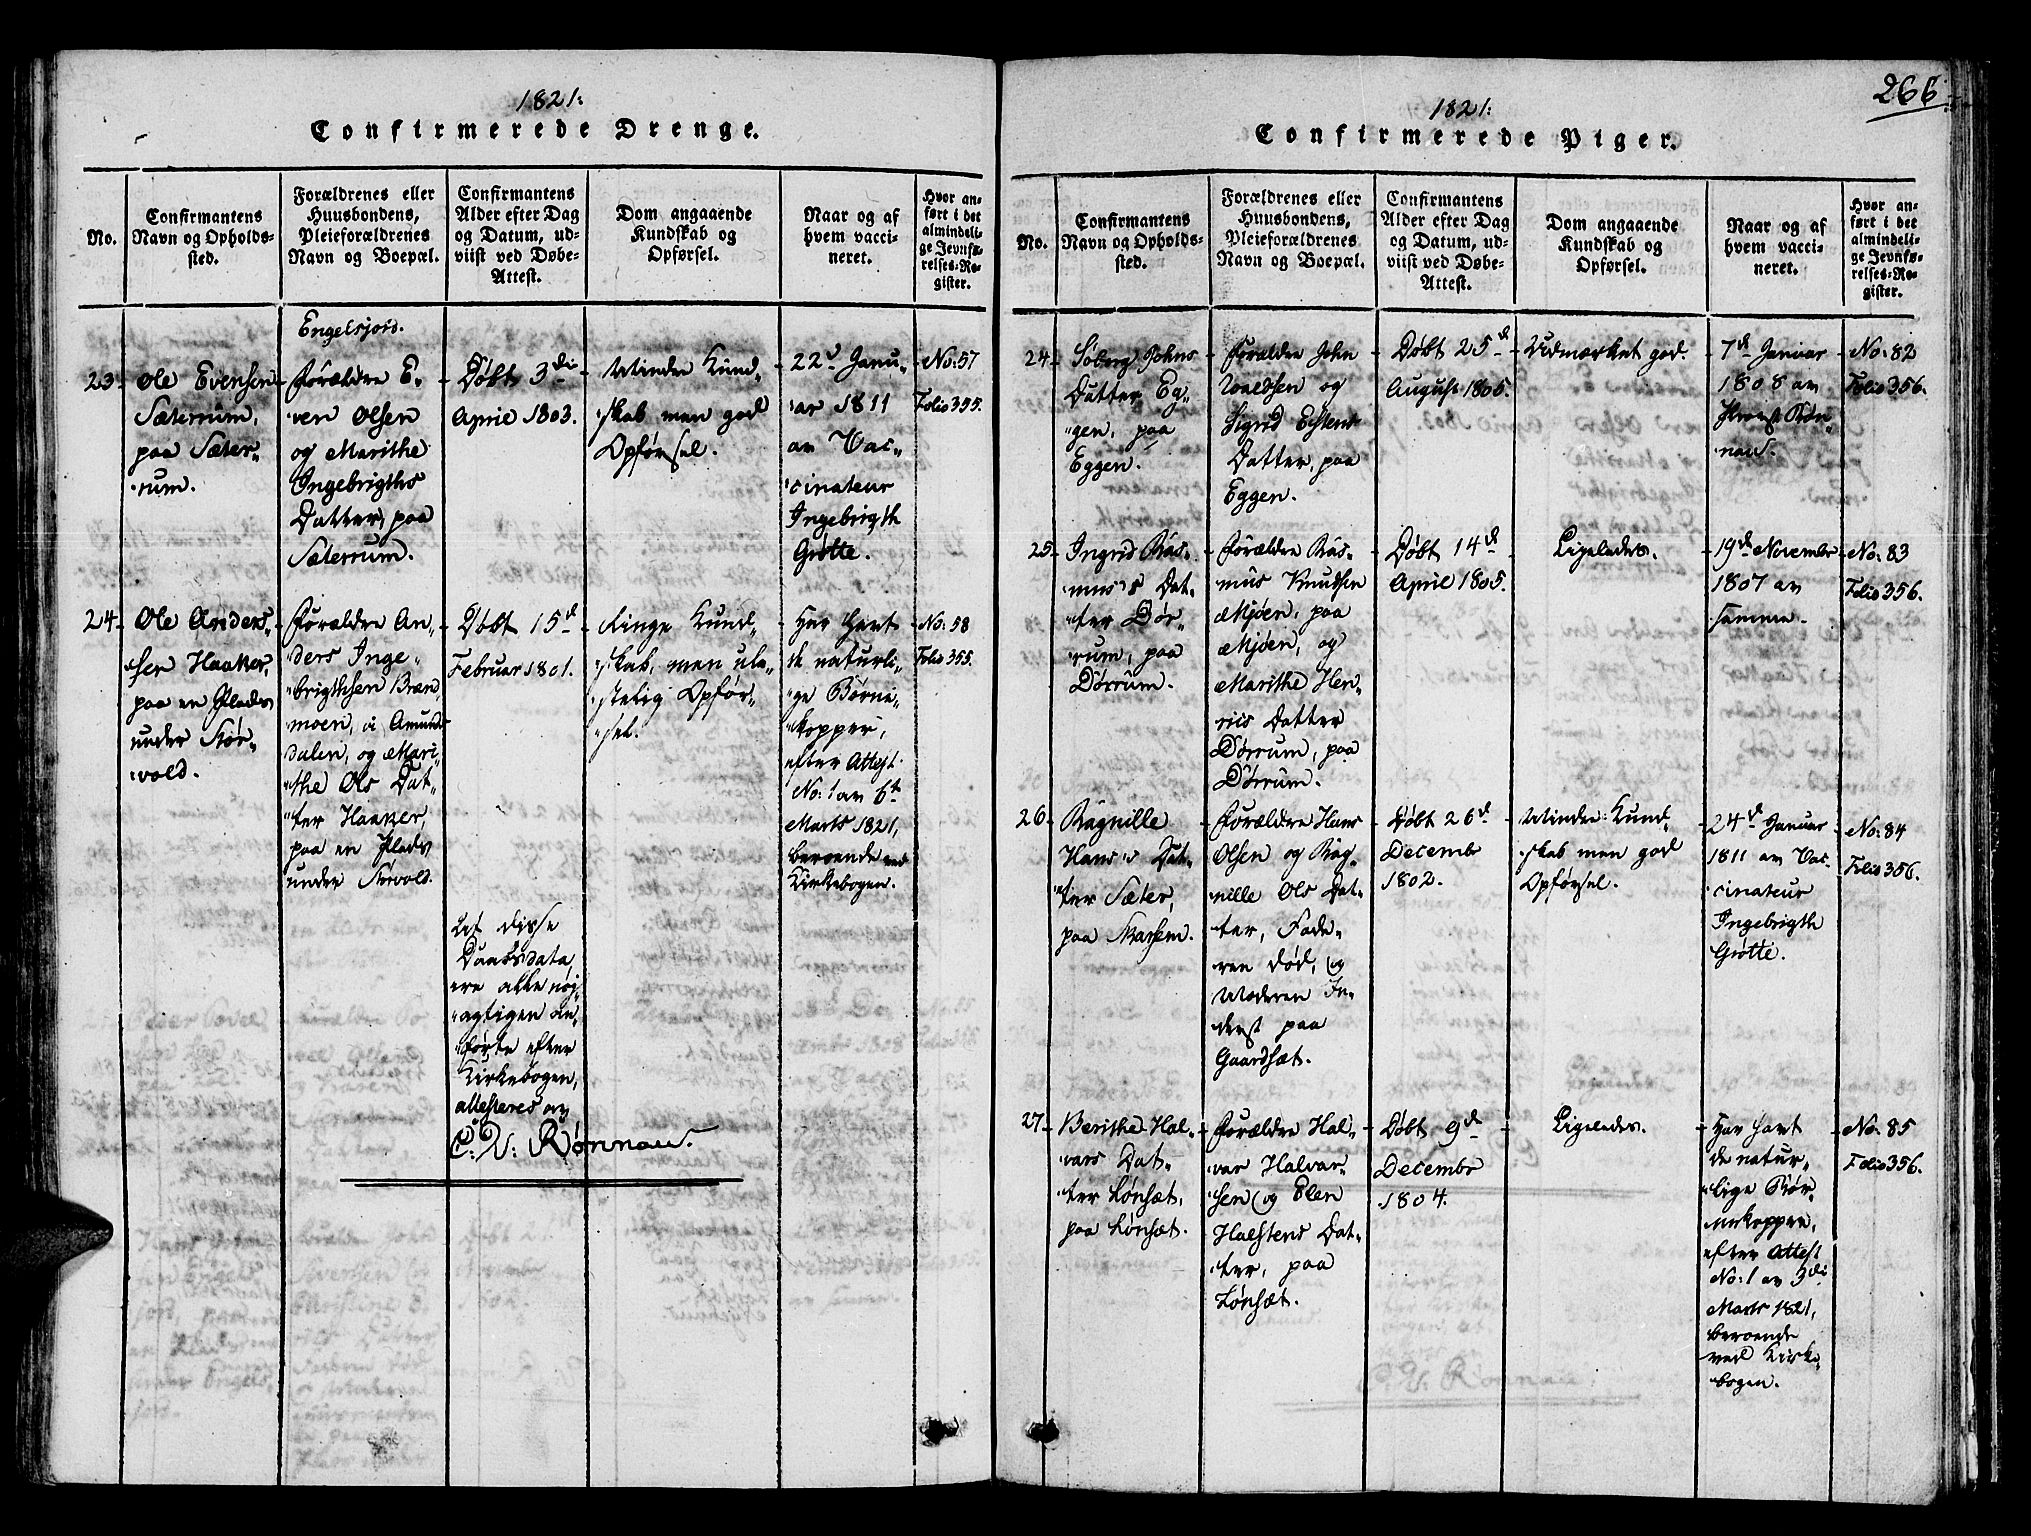 1821:
Confirmerede Drenge.
No.
Confirmantens
Navn og Opholds-
sted.
Forældrenes eller
Huusbondens,
Pleieforældrenes
Navn og Boepæl.
Confirmantens
Alder efter Dag
og Datum, ud-
viist ved Døbe-
Attest.
Dom angaaende
Kundskab og
Opførsel.
Naar og af
hvem vacci-
neret.
Hvor an-
ført i det
almindeli-
ge Jevnfø-
relses-Re-
gister.
Engelsjord.
23
Ole Evensen
Sæterrum,
paa Sæter-
rum.
Forældre E-
ven Olsen
og Marithe
Ingebrigths
Datter, paa
Sæterrum.
Døbt 3di
April 1803.
Mindre Kund-
skab men god
Opførsel.
22d Janu-
ar 1811
av Vac-
cinateur
Ingebrigth
Grøtte.
No: 57
Folio 355.
24
Ole Anders-
sen Haaker,
paa en Plads
under Stør-
vold.
Forældre An-
ders Inge-
brigthsen Bræn
moen, i Amunds
dalen, og Mari-
the Ols Dat-
ter Haaker,
paa en Plads
under Størvold.
Døbt 15d
Februar 1801.
Ringe Kund-
skab, men ula-
stelig Opfør-
sel.
Har havt
de naturli-
ge Børne-
kopper,
efter Attest
No: 1 av 6te
Marts 1821,
beroende ved
Kirkebogen.
No: 58
Folio 355.
At disse
Daabsdata
ere alle nøj-
agtigen an-
førte efter
Kirkebogen,
attesteres av
C. V: Rønnau.
266
1821:
Confirmerede Piger.
No.
Confirmantens
Navn og Opholds-
sted.
Forældrenes eller
Huusbondens,
Pleieforældrenes
Navn og Boepæl.
Confirmantens
Alder efter Dag
og Datum, ud-
viist ved Døbe-
Attest.
Dom angaaende
Kundskab og
Opførsel.
Naar og af
hvem vacci-
neret.
Hvor an-
ført i det
almindeli-
ge Jevnfø-
relses-Re-
gister.
24
Søborg Johns
Datter Eg-
gen, paa
Eggen.
Forældre John
og
Sigrid Estens
Datter, paa
Eggen.
Døbt 25d
August 1805.
Udmærket god.
7d Januar
1808 av
Provst Røn-
nau.
No: 82
Folio 356.
25
Ingrid Ras-
mus's Dat-
ter Dør-
rum, paa
Dørrum.
Forældre Ras-
mus Knudsen
Mjøen, paa
Mjøen, og
Marithe Hen-
rics Datter
Dørrum, paa
Dørrum.
Døbt 14d
April 1805.
Ligeledes.
19d Novembr
1807 av
samme.
No: 83
Folio 356.
26
Ragnille
Hans's Dat-
ter Sæter,
paa Skarsem.
Forældre Hans
Olsen og Rag-
nille Ols Dat-
ter, Fade-
ren død, og
Moderen In-
derst paa
Gaardsæt.
Døbt 26d
Decembr
1802.
Mindre Kund-
skab men god
Opførsel.
24d Januar
1811 av Vac-
cinateur
Ingebrigth
Grøtte.
No: 84
Folio 356.
27
Berithe Hal-
vars Dat-
ter Lønsæt,
paa Lønsæt.
Forældre Hal-
var Halvar-
sen og Elen
Halstens Dat-
ter, paa
Lønsæt.
Døbt 9d
Decembr
1804.
Ligeledes.
Har havt
de natur-
lige Bør-
nekopper,
efter Attest
No: 1 av 3di
Marts 1821,
beroende
ved Kirke-
bogen.
No: 85
Folio 356.